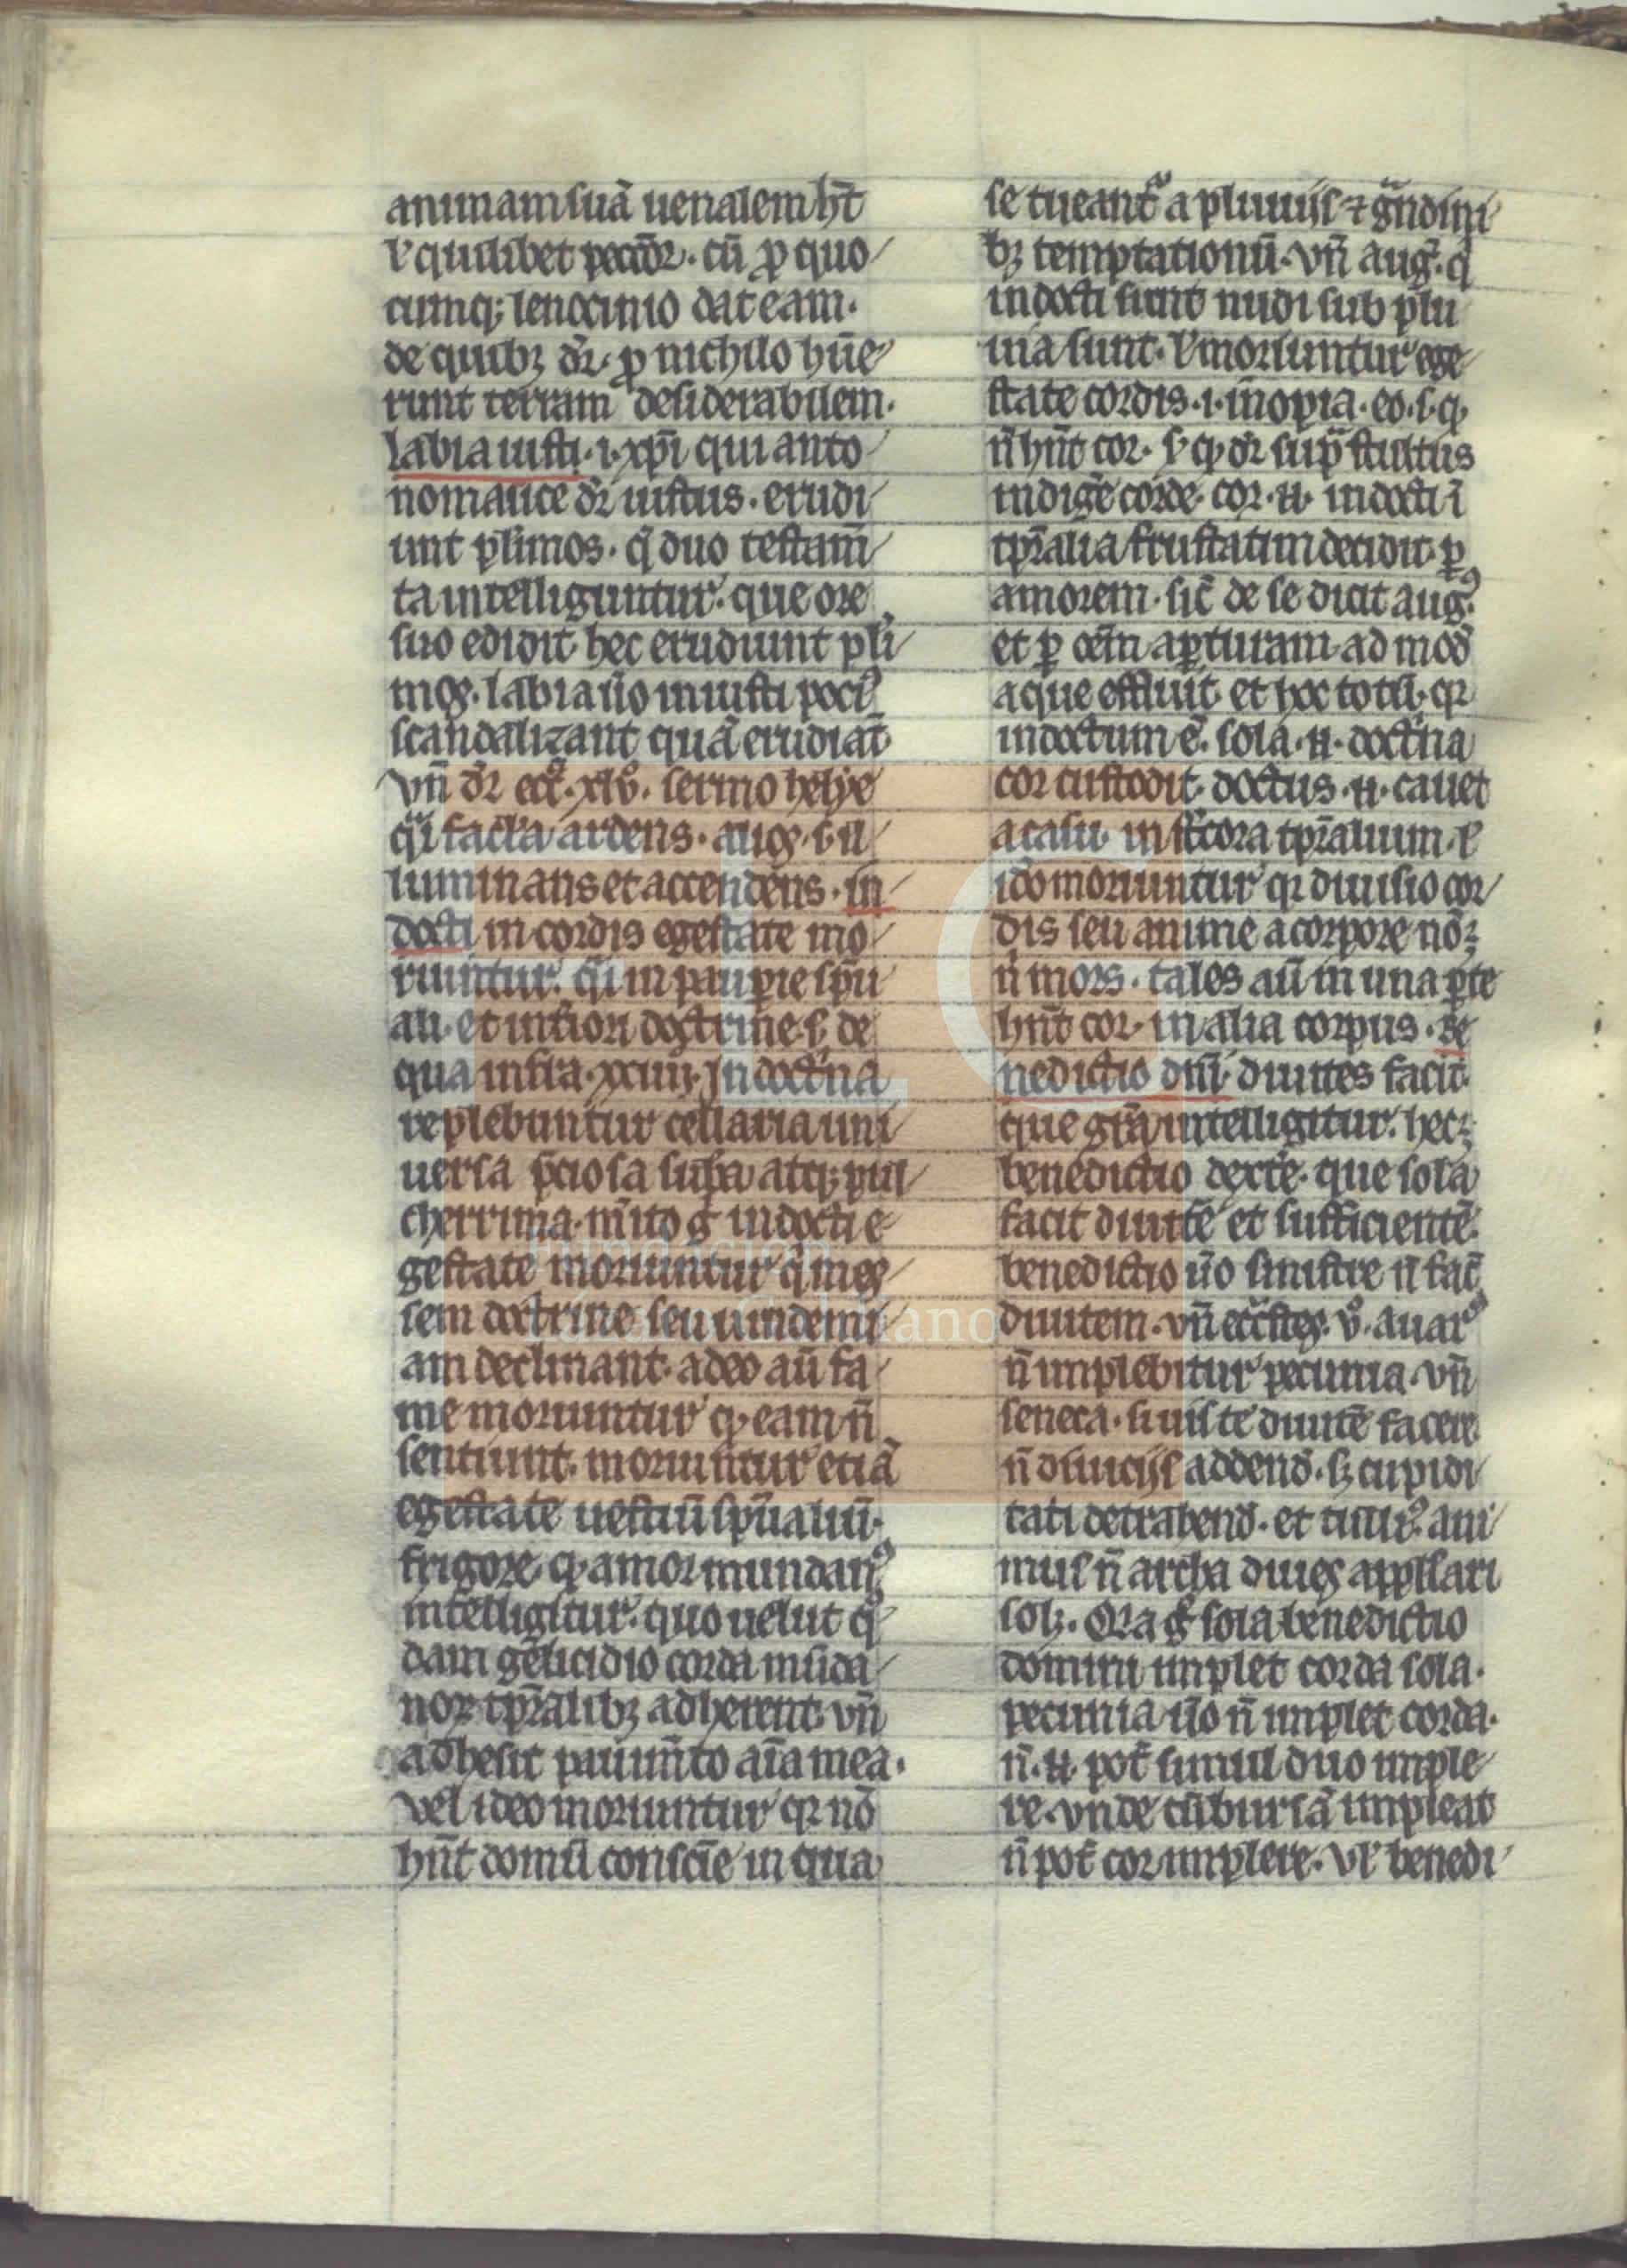 animam suā uenalem hn̄t
ł quilibet peccōr. cū ꝓ quo
cumq; lenocinio dat eam.
de quibꝫ dr̄. ꝓ nichilo hūe
runt terram desiderabilem.
labia iusti .i. xp̄i qui anto
nomatice dr̄ iustus. erudi
unt pl̄imos. q̄ duo testam̄
ta intelliguntur. que ore
suo edidit hec erudiunt pl̄i
mos. labia u̓o iniusti poci᷒
scandalizant quā erudiāt
vn̄ dr̄ ecc̄i. xlv. sermo helye
q̄i facula ardens. aug᷒. s. il
luminans et accendens. in
docti in cordis egestate mo
riuntur. q̄i in paup̱ie sp̄u
ali. et int̓iori doctrine s. de
qua infra. xxiiij. In doct̓na
replebuntur cellaria uni
uersa p̄ciosa sub̄a atq; pul
cherrima. m̓ito g̊ indocti e
gestate moriuntur q̓ mes
sem doctrine seu uindemi
am declinant. adeo aū fa
me moriuntur ꝙ eam n̄
sentiunt. moriuntur etiā
egestate uestiū sp̄ualiū.
frigore. ꝙ amor mundan᷒
intelligitur. quo uelut q̓
dam gelicidio corda mūda
noꝝ tp̄ralibꝫ adherent. vn̄
adhesit pauim̄to aīa mea.
vel ideo moriuntur qꝛ nō
hn̄t domū consciē in qua
se tueant᷑ a pluuijs ⁊ gᷓndini
bꝫ temptationū. vn̄ aug᷒. q̓
indocti sunt nudi sub plu
uia sunt. ł moriuntur ege
state cordis .i. inopia. eo .s. ꝙ
n̄ hn̄t cor. sꝫ ꝙ dr̄ supᷓ stultus
indiget corde. cor .n. indocti ī
tp̄ralia frustatim decidit. ꝑ
amorem. sic̄ de se dicit aug᷒.
et ꝑ oēm aꝑturam ad mod̄
aque effluit. et hoc totū. qꝛ
indoctum ē. sola .n. doct̓na
cor custodit. doctus .n. cauet
a casu in st̓cora tp̄ralium. ł
iō moriuntur qꝛ diuisio cor
dis seu anime a corpore nōꝫ
n̄ mors. tales aū in una ꝑte
hn̄t cor. in alia corpus. Be
nedictio dn̄i diuites facit
que gr̄a intelligitur. hecꝫ
benedictio dext̓e. que sola
facit diuitē et sufficientē.
benedictio u̓o sinistre n̄ fac̄
diuitem. vn̄ ecc̄stes. v. auar᷒
n̄ implebitur pecunia. vn̄
seneca. si uis te diuitē facere
n̄ diuicijs addend̄. sꝫ cupidi
tati detrahend̄. et tulli᷒. ani
mus n̄ archa diues appellari
solꝫ. Quia g̊ sola benedictio
domini implet corda sola.
pecunia u̓o n̄ implet corda.
n̄ .n. pot̄ simul duo imple
re. vnde cū bursā impleat
n̄ pot̄ cor implere. vł benedi